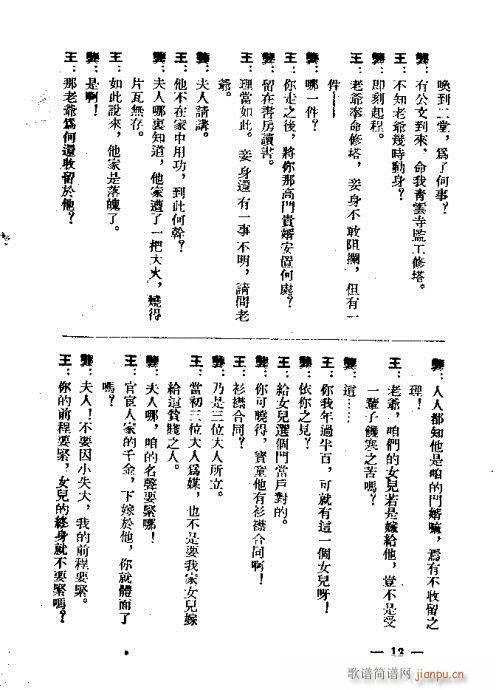 喚到二堂，爲了何事？
龔：有公文到來，命我青雲寺監工修塔。
王：不知老爺幾時動身？
龔：即刻起程。
王：老爺奉命修塔，妾身不敢阻攔，但有一
件——
龔：哪一件？
王：你走之後，將你那高門貴婿安置何處？
龔：留在書房讀書。
王：理當如此。妾身還有一事不明，請問老
爺。
龔：夫人請講。
王：他不在家中用功，到此何幹？
龔：夫人哪裏知道，他家遭了一把大火，燒得
片瓦無存。
王：如此說來，他家是落魄了。
龔：是啊！
王：那老爺爲何還收留於他？
龔：人人都知他是咱的門婿嘛，焉有不收留之
理！
王：老爺，咱們的女兒若是嫁給他，豈不是受
一輩子饑寒之苦嗎？
龔：這……
王：你我年過半百，可就有這一個女兒呀！
龔：依你之見？
王：給女兒選個門當戶對的。
龔：你可曉得，實棄他有衫襟合同啊！
王：衫襟合同？
龔：乃是三位大人所立。
王：當初三位大人爲媒，也不是要我家女兒嫁
給這貧賤之人。
龔：夫人哪，咱的名聲要緊哪！
王：官宦人家的千金，下嫁於他，你就體面了
嗎？
龔：夫人！不要因小失大，我的前程要緊。
王：你的前程要緊，女兒的終身就不要緊嗎？
— 13 —
歌谱简谱网
jianpu.cn